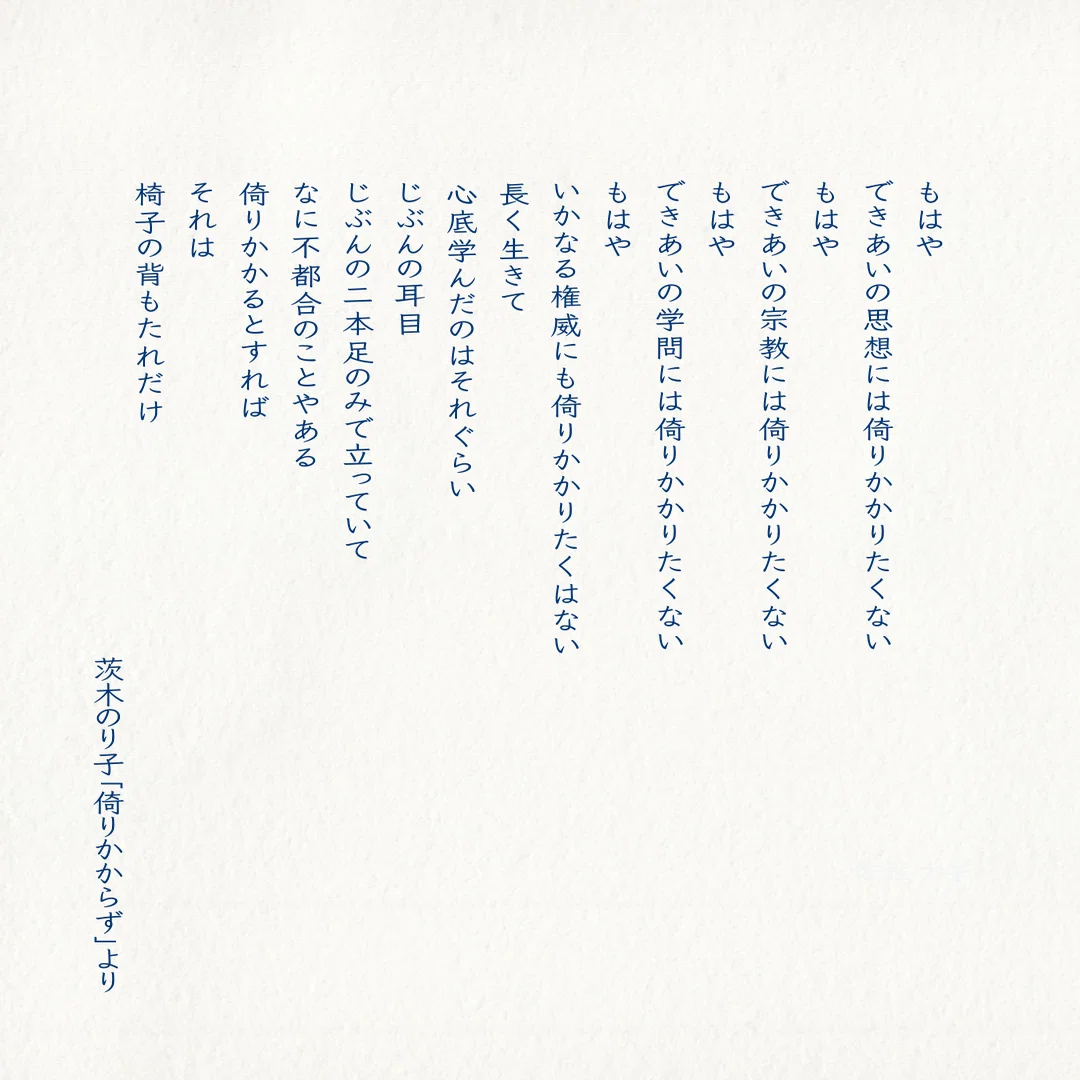 もはや
できあいの思想には倚りかかりたくない
もはや
できあいの宗教には倚りかかりたくない
もはや
できあいの学問には倚りかかりたくない
もはや
いかなる権威にも倚りかかりたくはない
長く生きて
心底学んだのはそれぐらい
じぶんの耳目
じぶんの二本足のみで立っていて
なに不都合のことやある
倚りかかるとすれば
それは
椅子の背もたれだけ
茨木のり子「倚りかからず」より